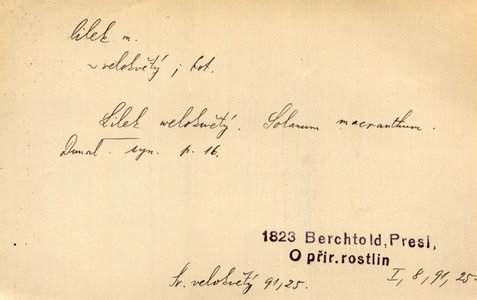 lilek m.
~ velokvětý ; bot.
Lilek welokwětý. Solanum macranthum.
Dunal. syn. p. 16.
1823 Berchtold, Presl,
O přír. rostlin
I, 8, 91, 25
Sr. velokvětý 91, 25.